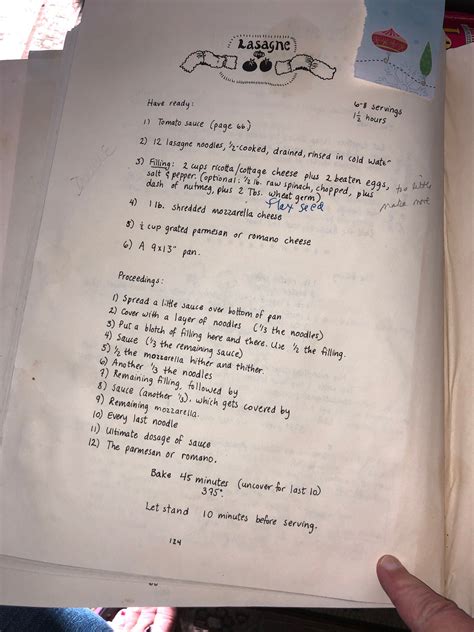 Lasagne
Have ready:
6-8 servings
1½ hours
1) Tomato sauce (page 66)
2) 12 lasagne noodles, ½-cooked, drained, rinsed in cold water
3) Filling: 2 cups ricotta/cottage cheese plus 2 beaten eggs,
salt & pepper. (optional: ½ lb. raw spinach, chopped, plus
dash of nutmeg, plus 2 Tbs. wheat germ)
flax seed
too little
make more
4) 1 lb. shredded mozzarella cheese
5) ½ cup grated parmesan or romano cheese
6) A 9x13" pan.
Proceedings:
1) Spread a little sauce over bottom of pan
2) Cover with a layer of noodles (⅓ the noodles)
3) Put a blotch of filling here and there. Use ½ the filling.
4) Sauce (⅓ the remaining sauce)
5) ½ the mozzarella hither and thither.
6) Another ⅓ the noodles
7) Remaining filling, followed by
8) Sauce (another ⅓), which gets covered by
9) Remaining mozzarella.
10) Every last noodle
11) Ultimate dosage of sauce
12) The parmesan or romano.
Bake 45 minutes (uncover for last 10)
375°.
Let stand 10 minutes before serving.
124